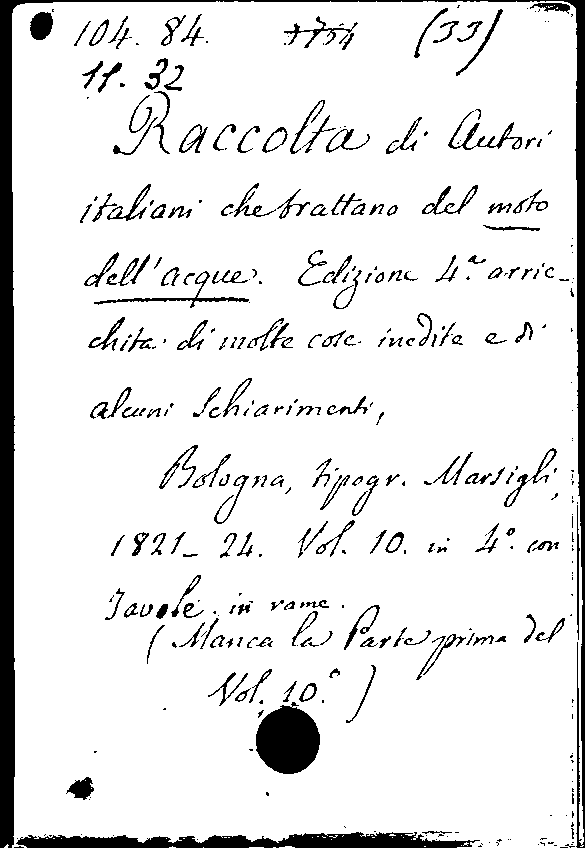 104. 84. 3754 (33)
11. 32
Raccolta di Autori
italiani che trattano del moto
dell'acque. Edizione 4.a arric-
chita di molte cose inedite e di
alcuni Schiarimenti,
Bologna, tipogr. Marsigli,
1821-24. Vol. 10. in 4.o con
Tavole in rame.
(Manca la Parte prima del
Vol. 10.o)